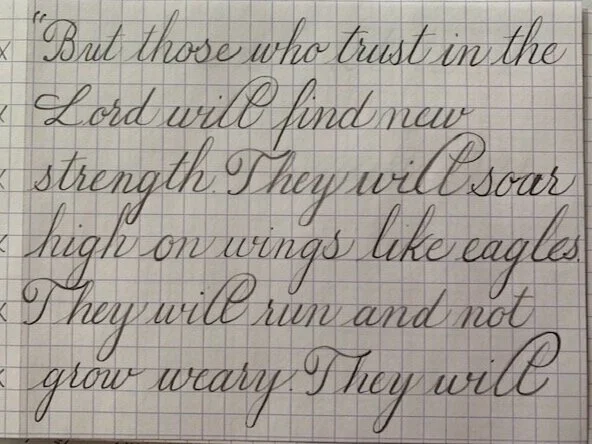 "But those who trust in the
Lord will find new
strength. They will soar
high on wings like eagles.
They will run and not
grow weary. They will